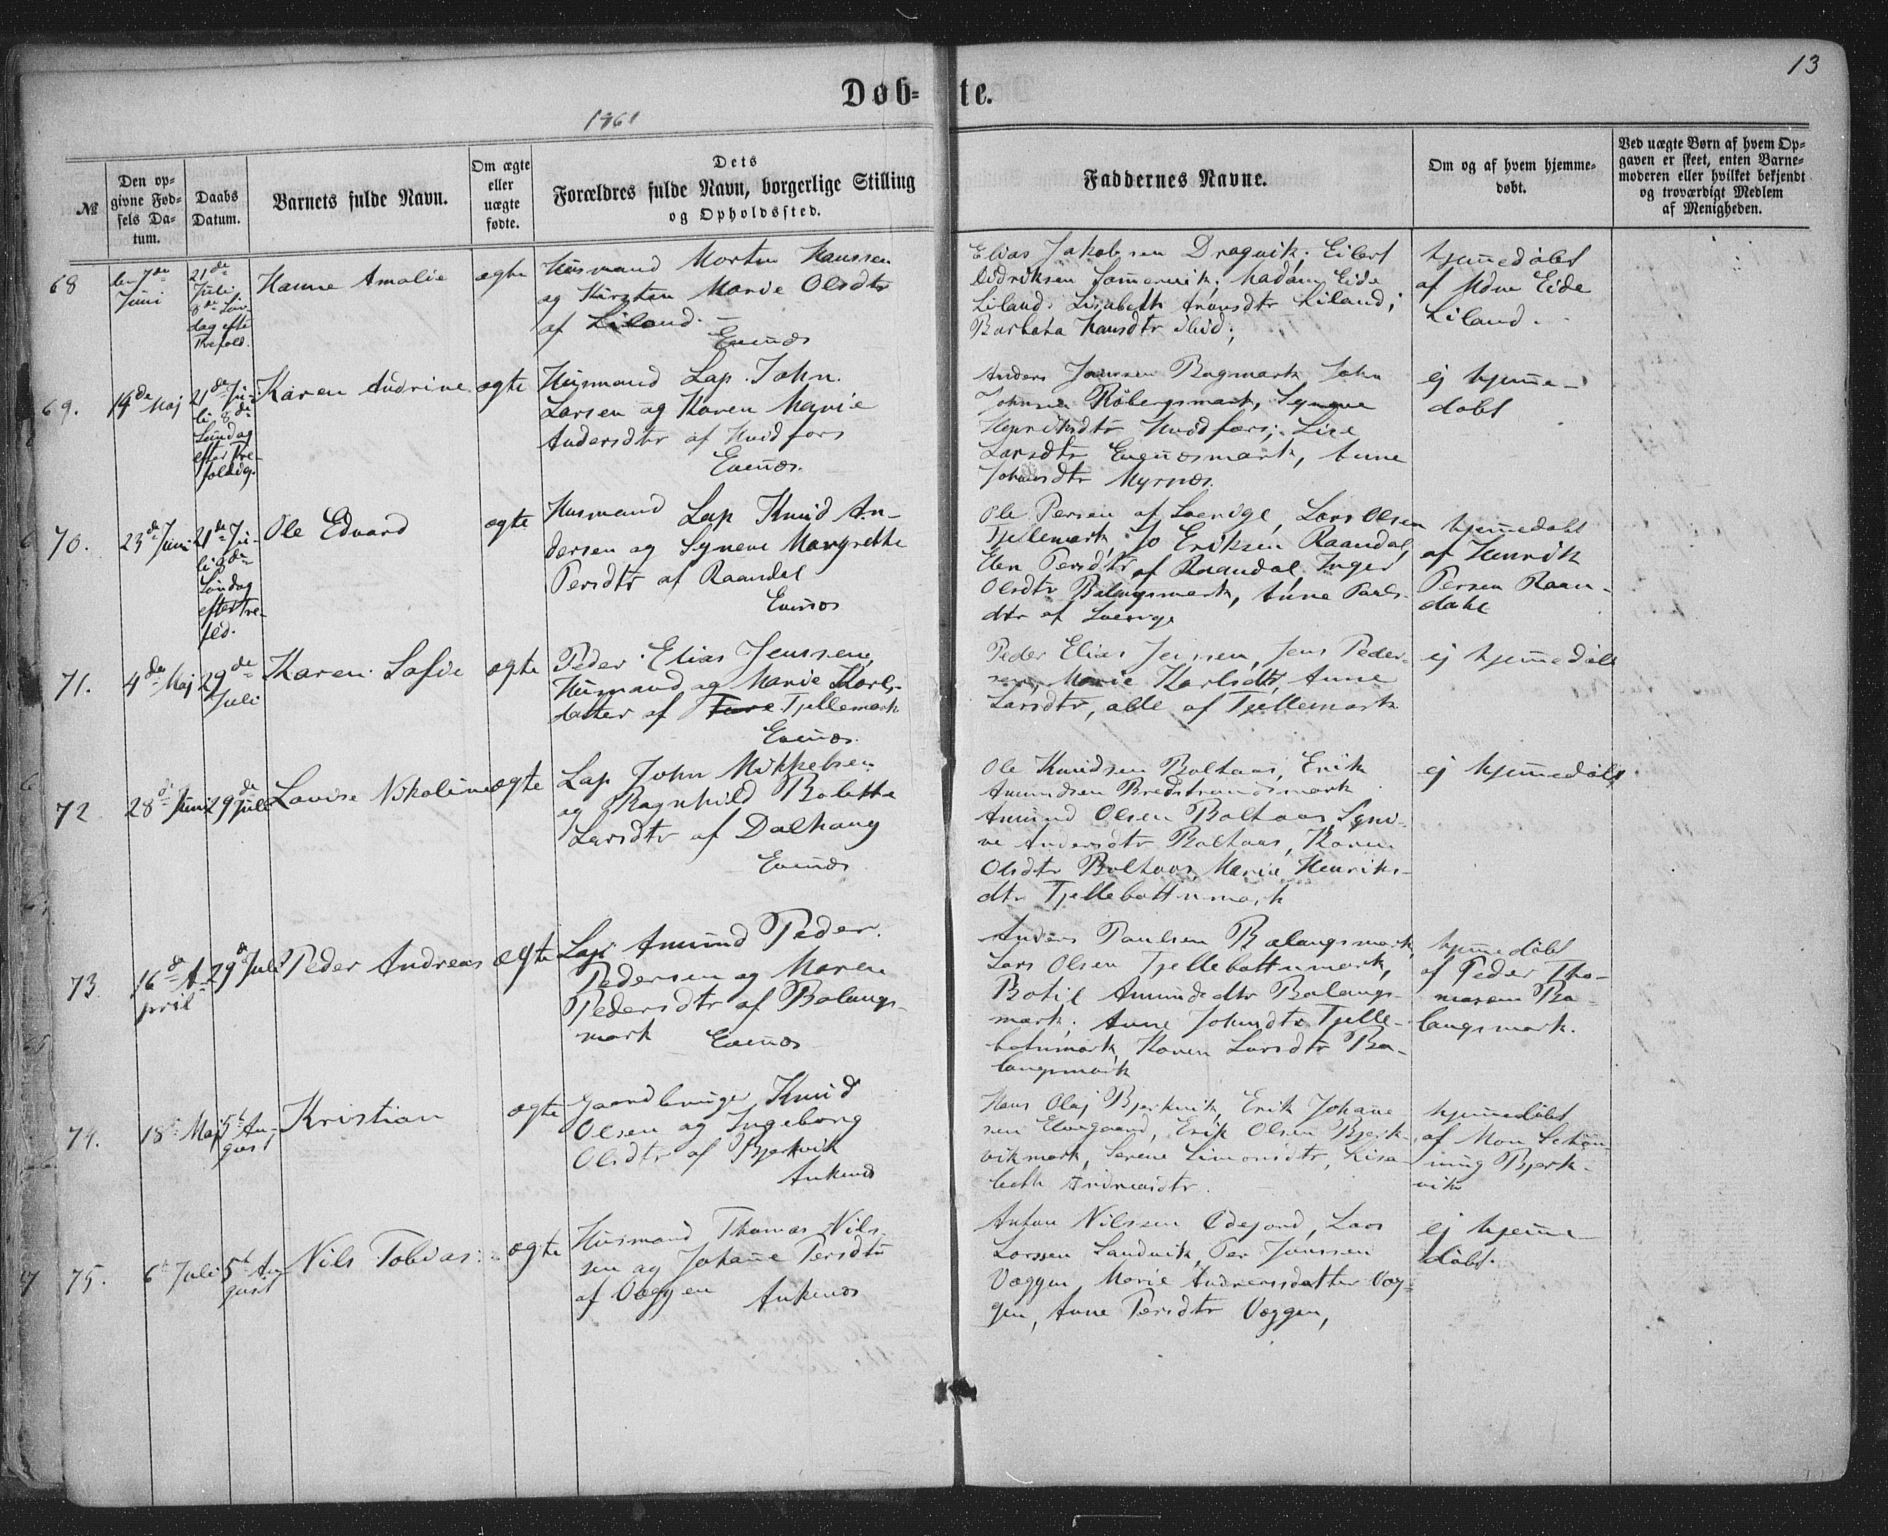 13
Døb-te.
1861
№
Den op-
givne Fød-
sels Da-
tum.
Daabs
Datum.
Barnets fulde Navn.
Om ægte
eller
uægte
fødte.
Dets
Forældres fulde Navn, borgerlige Stilling
og Opholdssted.
Faddernes Navne.
Om og af hvem hjemme-
døbt.
Ved uægte Børn af hvem Op-
gaven er skeet, enten Barne-
moderen eller hvilket bekjendt
og troværdigt Medlem
af Menigheden.
68
7de
Juni
21de
Juli
8de
dag efte
Trefold.
Hanne Amalie
ægte
Husmand Morten Hanssen
og Kirsten Marie Olsdtr
af Liland.
Evenæs
Elias Jakobsen Dragvik; Eilert
Didriksen Sommervik; Madam Eide
Liland; Lisabeth Liland;
Barbara Hansdtr ibid;
hjemedøbt
af Mdm Eide
Liland.
69.
19de Maj
21de Ju-
li 8de
Søndag
efter Tre-
foldig.
Karen Andrine
ægte
Husmand Lap John
Larsen og Karen Marie
Andersdtr af Kvidfors
Evenæs.
Anders Jonssen Bogmark John
Johnsen Røbergsmark, Synneve
Henriksdtr Kvidfors; Lise
Larsdtr Evenæsmark, Anne
Johansdtr Myrnæs.
ej hjemme-
døbt
70.
23de Juni
21de Ju-
li 8de
Søndag
efter Tre-
fold.
Ole Edvard
ægte
Husmand Lap Knud An-
dersen og Syneve Margrethe
Persdtr af Raandal
Evenæs
Ole Persen af Lavrige, Lars Olsen
Tjellemark, Jo Eriksen Raandal,
Elen Persdtr af Raandal, Inger
Olsdtr Balangsmark, Anne Pauls-
dtr af
hjemedøbt
af Henrik
Persen Raan-
dahl
71.
4de Maj
29de
Juli
Karen Sofie
ægte
Peder Elias Jenssen,
Husmand og Marie Karls-
datter af Tjellemark
Evenæs.
Peder Elias Jenssen, Jens Peder-
sen, Marie Karlsdtr, Anne
Larsdtr, alle af Tjellemark
ej hjemedøbt
72.
28de Juni
29de Juli
Lovise Nikoline
ægte
Lap John Mikkelsen
og Ragnhild Boletta
Larsdtr af Dalhaug
Evenæs
Ole Knudsen Boltaas, Erik
Amundsen Bredstrandsmark
Amund Olsen Boltaas, Syne-
ve Andersdtr Boltaas, Karen
Olsdtr Boltaas Marie Henriks-
dtr Tjellebottnmark
ej hjemedøbt
73
16de A-
pril
29de Juli
Peder Andreas
ægte
Lap Amund Peder
Pedersen og Maren
Pedersdtr af Balangs-
mark
Evenæs
Anders Paulsen Balangsmark,
Lars Olsen Tjellebottnmark,
Botil Amundsdtr Balangs-
mark; Anne Johnsdtr Tjelle-
botnmark, Karen Larsdtr Ba-
langsmark
hjemedøbt
af Peder Tho-
masen Ba-
langsmark.
74.
18de Maj
5te Au-
gust
Kristian
ægte
Gaardbruger Knud
Olsen og Ingeborg
Olsdtr af Bjerkvik
Ankenes
Hans Olaj Bjerkvik, Erik Johane-
sen Elvegaard, Erik Olsen Bjerk-
vikmark, Serene Simonsdtr, Lisa-
beth Andreasdtr.
hjemedøbt
af Mon Schøn-
ning Bjerk-
vik
75.
6te Juli
5te Au-
gust
Nils Tobias
ægte
Husmand Thomas Nils-
sen og Johanne Persdtr
af Væggen
Ankenæs
Anfon Nilssen Ødejord, Lars
Larssen Sandvik, Per Jonssen
Væggen, Marie Andreasdatter Væg-
gen, Anne Persdtr Væggen,
ej hjemme-
døbt.